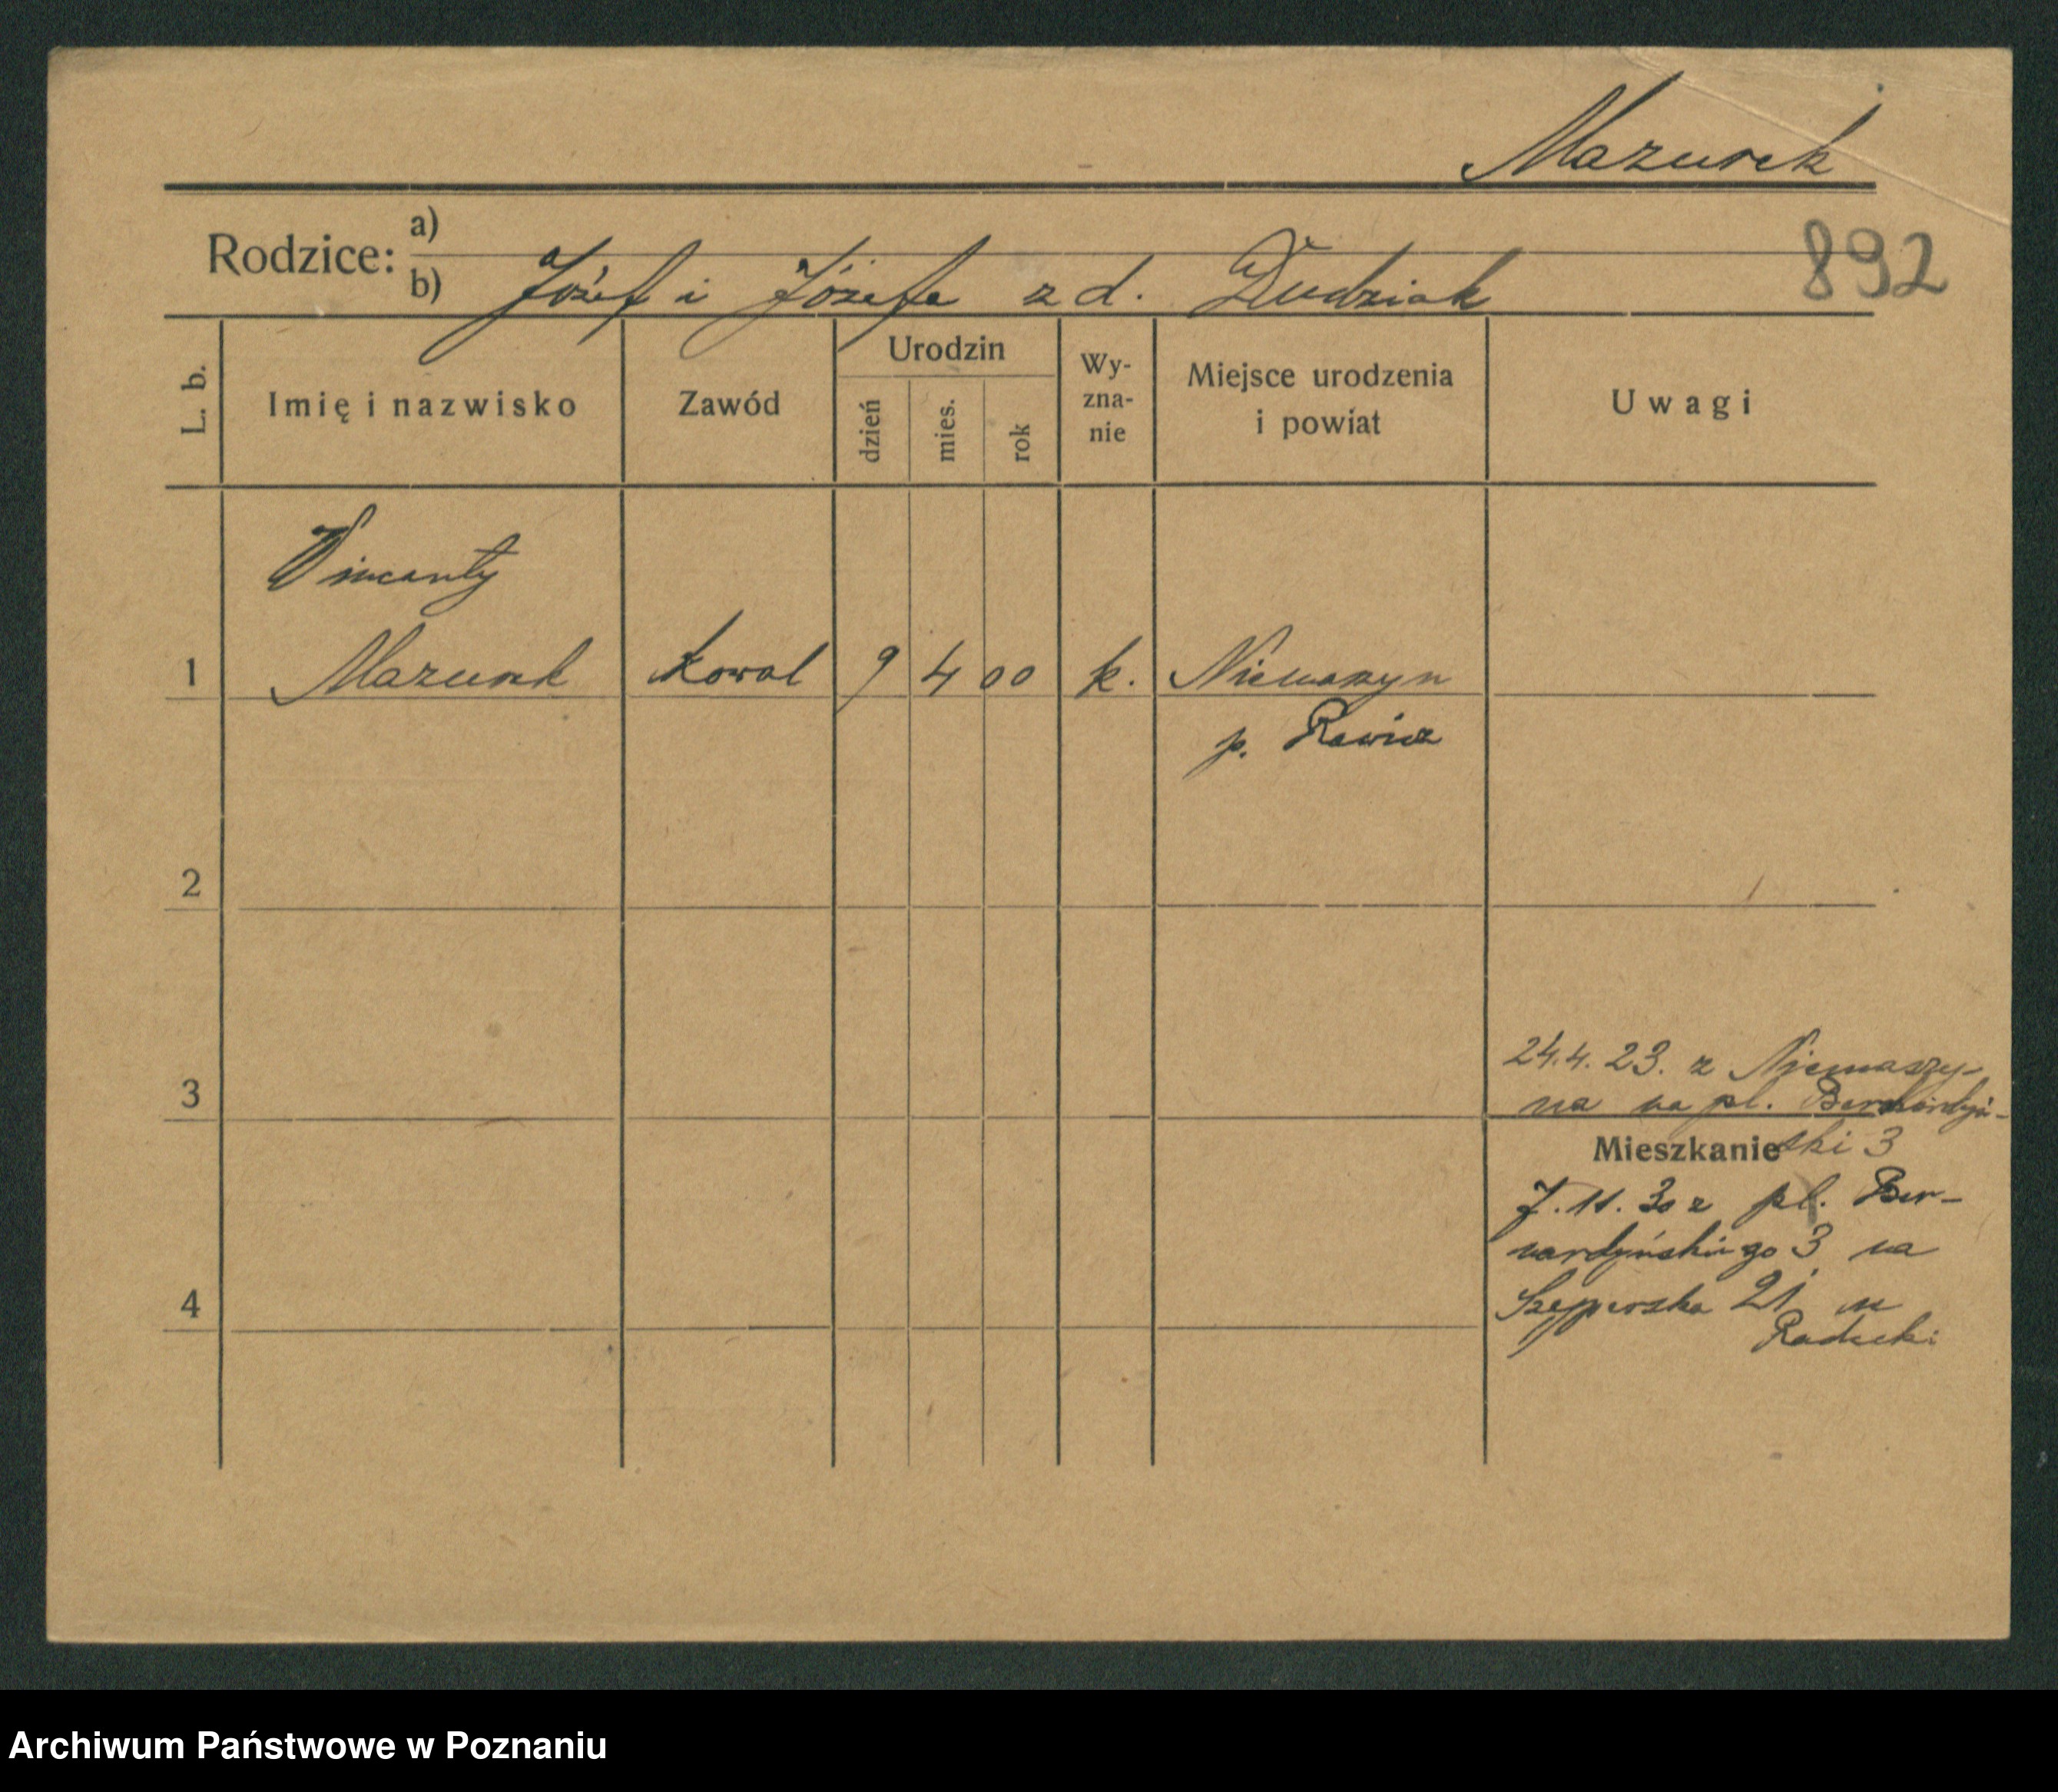 Mazurek
Rodzice: a)
b) Józef i Józefa z d. Dudziak
892
L. b.
Imię i nazwisko
Zawód
Urodzin
dzień
mies.
rok
Wy-
zna-
nie
Miejsce urodzenia
i powiat
Uwagi
Wincenty
1 Mazurek Kowal 9 4 00 k.
p. Rawicz
2
3
24.4.23. z
na na pl. Bernardyń-
ski 3
Mieszkanie
7.11.30 z pl. Ber-
nardyńskiego 3 na
21 m
4
Archiwum Państwowe w Poznaniu